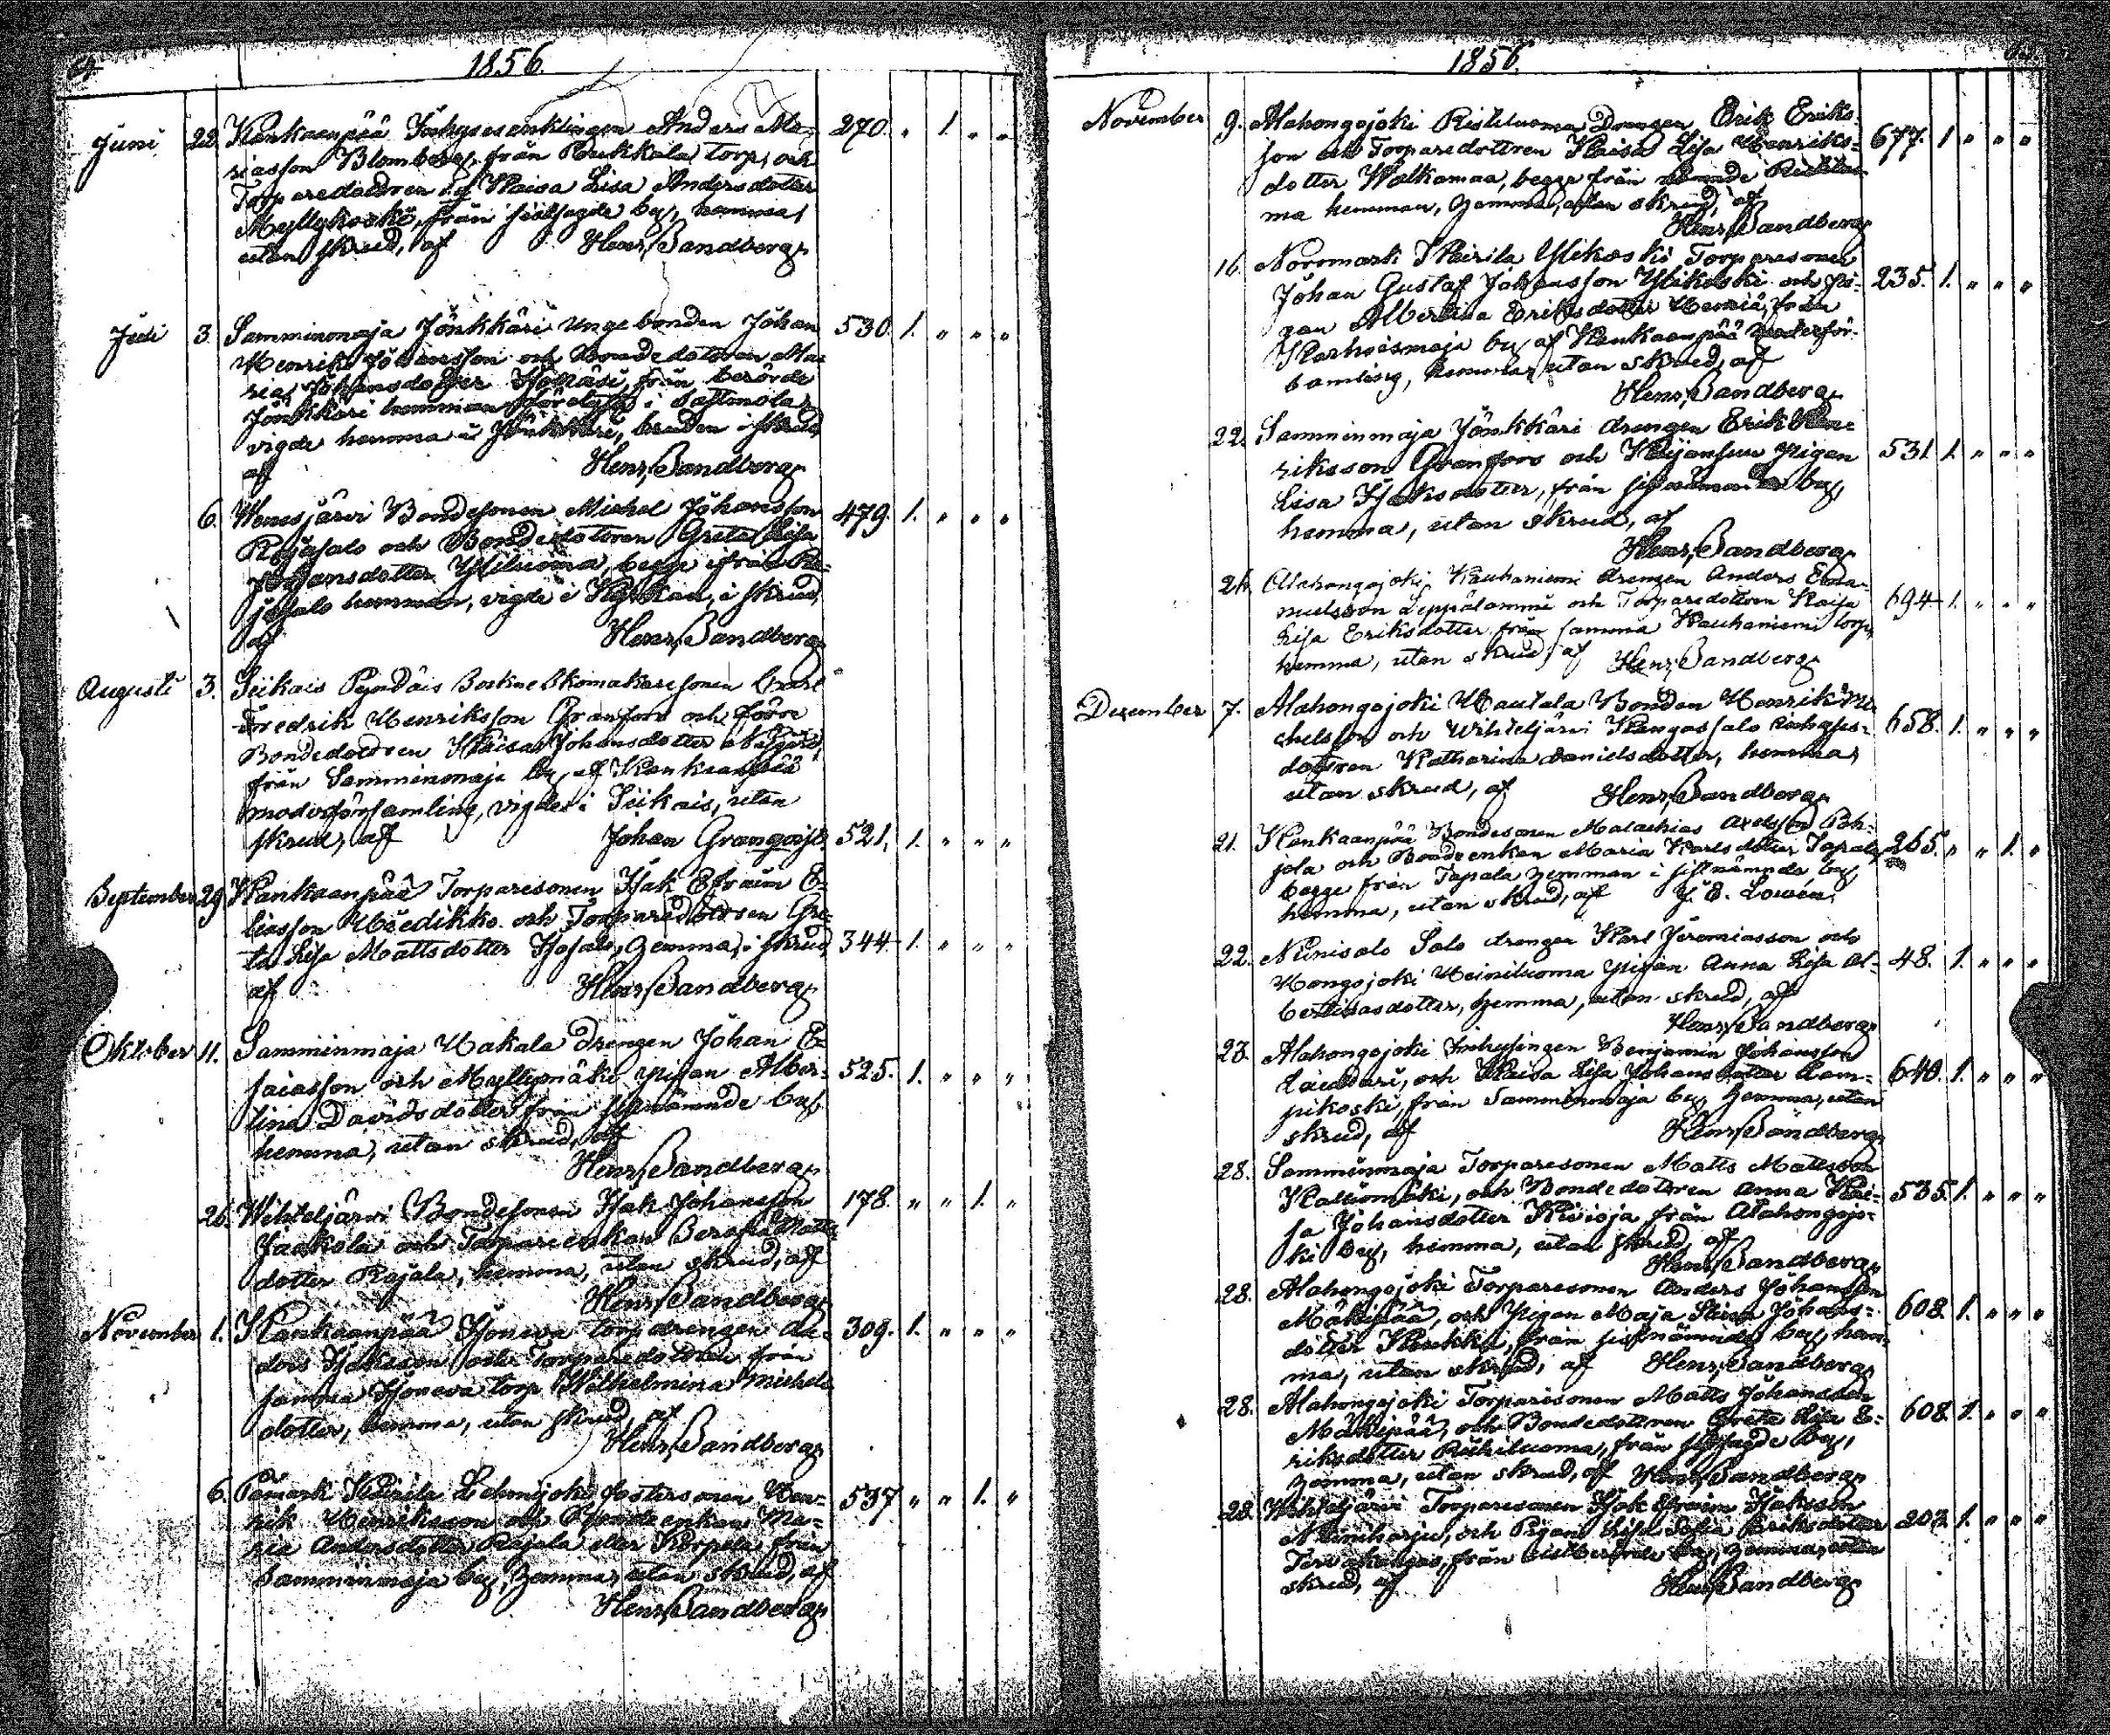 64.
1856.
Juni 22. Kankaanpää Inhysesenklingen Anders Ma- 270. " 1. " "
riasson Blomberg, från Poukkala torp, och
Torparedottren Kaisa Lisa Andersdotter
Myllykoski, från sistsagde by, hemma,
utan skrud, af Henr. Sandberg.
Juli 3. Samminmaja Jönkkäri unge bonden Johan 530. 1. " " "
Henrik Johansson och Bondedottren Ma-
ria Johansdotter från berörde
Jönkkäri hemman
vigde hemma i Jönkkäri, bruden i skrud,
af Henr. Sandberg.
6. Wenesjärvi Bondesonen Michel Johansson 479. 1. " " "
Rajasalo och Bondedottren Greta Lisa
Johansdotter Yliluoma, begge från Ra-
jasalo hemman, vigde i Kyrkan, i skrud,
af Henr. Sandberg.
Augusti 3. Siikais Pyndäis Sockne Skomakaresonen Carl
Fredrik Henriksson Granfors och förre
Bondedottren Kaisa Johansdotter
från Samminmaja by, af Kankaanpää
moderförsamling, vigde i Siikais, utan
skrud, af Johan Granqvist. 521. 1. " " "
September 29. Kankaanpää Torparesonen Isak Efraim E-
liasson och Torparedottren Gre-
ta Lisa Mattsdotter Isosalo, hemma, i skrud, 344. 1. " " "
af Henr. Sandberg.
Oktober 11. Samminmaja Hakala Drengen Johan E-
saiasson och Myllymäki pigan Alber- 525. 1. " " "
tina Davidsdotter från sistnämnde by,
hemma, utan skrud, af
Henr. Sandberg.
26. Wihteljärvi Bondesonen Isak Johansson 178. " " 1. "
Jaakola och Torpareenkan Serafia Matts-
dotter Rajala, hemma, utan skrud, af
Henr. Sandberg.
November 1. Kankaanpää Isoneva torp drengen An- 309. 1. " " "
ders Isaksson och Torparedottren från
samma Isoneva torp Wilhelmina Michels-
dotter, hemma, utan skrud, af
Henr. Sandberg.
6. Påmark Kairila Lehmijoki fostersonen Hen- 537 " " 1. "
rik Henriksson och Bondeenkan Ma-
ria Andersdotter Rajala eller Korpela från
Samminmaja by, hemma, utan skrud, af
Henr. Sandberg.
1856.
November 9. Alahongojoki Ristiluoma Drengen Erik Eriks-
son och Torparedottren Kaisa Lisa Henriks- 677. 1 " " "
dotter Walkamaa, begge från Ristiluo-
ma hemman, hemma, utan skrud, af
Henr. Sandberg.
16. Norrmark Kairila Ylikoski Torparesonen
Johan Gustaf Johansson Ylikoski och pi- 235. 1. " " "
gan Albertina Eriksdotter från
Karhoismaja by af Kankaanpää moderför-
samling, hemma, utan skrud, af
Henr. Sandberg.
22. Samminmaja Jönkkäri drengen Erik Hen-
riksson Granfors och pigan 531. 1. " " "
Lisa Isaksdotter, från sistnämnde by,
hemma, utan skrud, af
Henr. Sandberg.
26. Alahongojoki Kauhaniemi drengen Anders Ema-
nuelsson Leppälammi och Torparedottren Kaisa 694. 1. " " "
Lisa Eriksdotter från samma Kauhaniemi torp,
hemma, utan skrud, af Henr. Sandberg.
December 7. Alahongojoki Hautala Bonden Henrik Mi-
chelsson och Wihteljärvi Kangassalo Inhyses- 658. 1. " " "
dottren Katharina Danielsdotter, hemma,
utan skrud, af Henr. Sandberg.
21. Kankaanpää Bondesonen Malachias Axelsson Poh-
jola och Bondeenkan Maria Karlsdotter Tapala, 265. " " 1. "
begge från Tapala hemman i sistnämnde by,
hemma, utan skrud, af J. E. Lowen.
22. Niinisalo Salo drengen Karl Jeremiasson och
Hongojoki Heiniluoma pigan Anna Lisa Al- 48. 1. " " "
bertinasdotter, hemma, utan skrud, af
Henr. Sandberg.
23. Alahongojoki Inhysingen Benjamin Johansson
och Kaisa Lisa Johansdotter Lam- 640. 1. " " "
pikoski, från Samminmaja by, hemma, utan
skrud, af Henr. Sandberg.
28. Samminmaja Torparesonen Matts Mattsson
Kalliomäki, och Bondedottren Anna Kai- 535. 1. " " "
sa Johansdotter Kivioja från Alahongojo-
ki by, hemma, utan skrud, af
Henr. Sandberg.
28. Alahongojoki Torparesonen Anders Johansson
Mäkipää, och Pigan Maja Stina Johans- 608. 1. " " "
dotter från sistnämnde by, hem-
ma, utan skrud, af Henr. Sandberg.
28. Alahongojoki Torparesonen Matts Johansson
Mäkipää, och Bondedottren Greta Lisa E- 608. 1. " " "
riksdotter från sistsagde by,
hemma, utan skrud, af Henr. Sandberg.
28. Wihteljärvi Torparesonen Isak Efraim Isaksson
Niiniharju, och Pigan Lisa Sofia Eriksdotter 203. 1. " " "
Tervakangas, från sistberörde by, hemma, utan
skrud, af Henr. Sandberg.